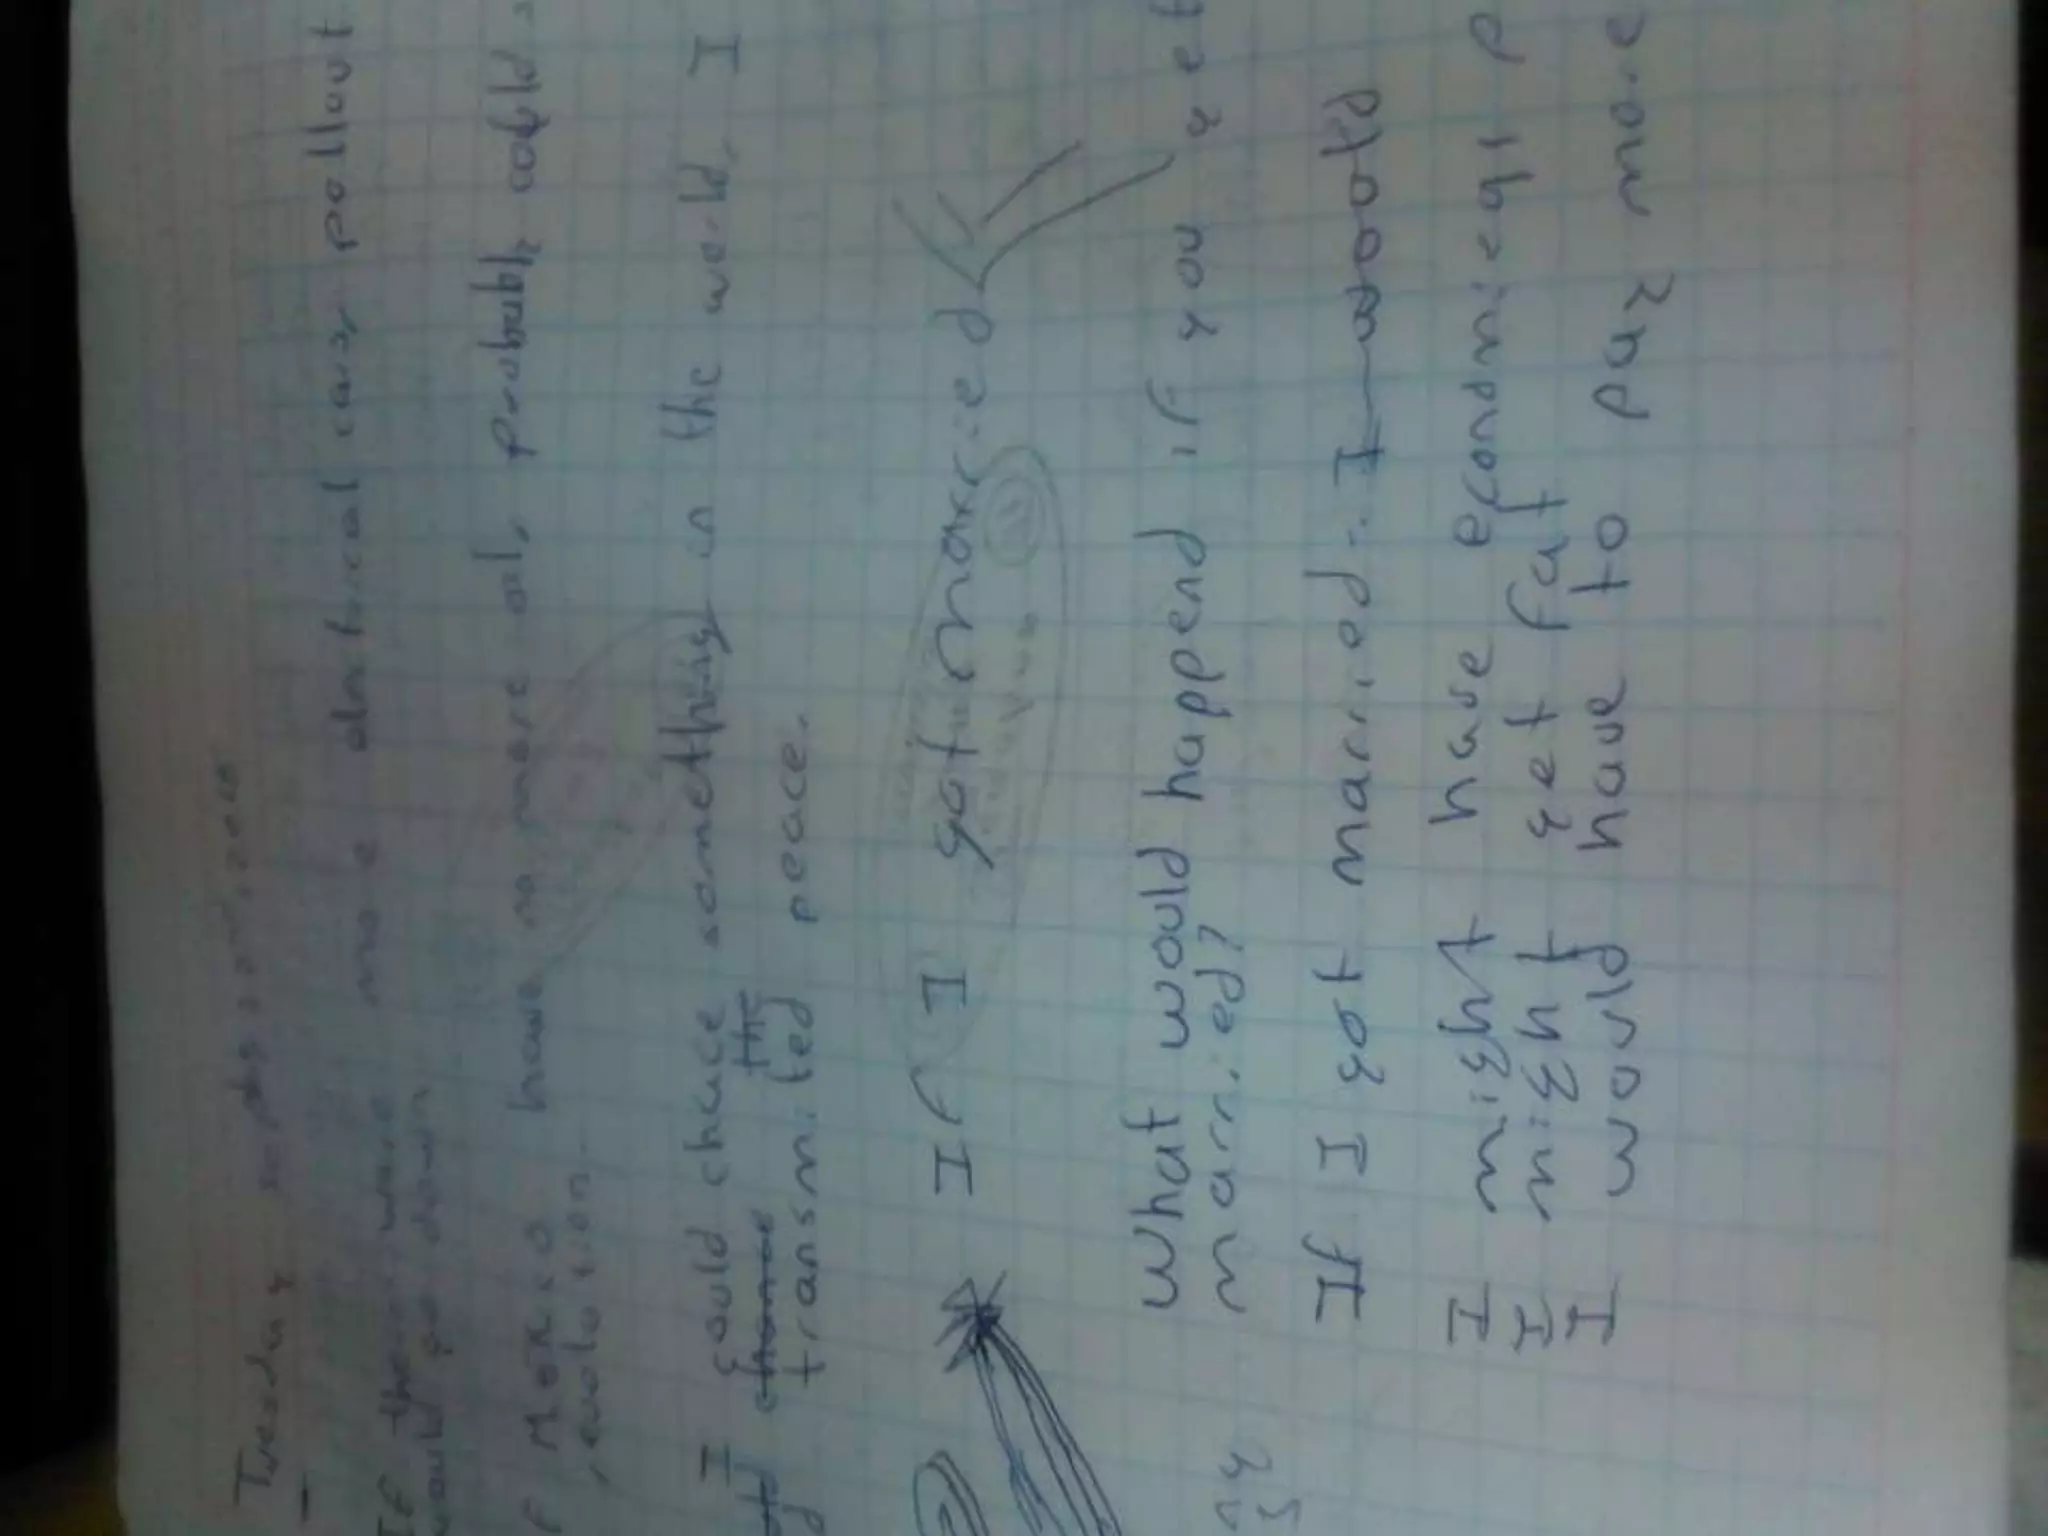 Tuesday
If there were no e artificial cars, pollout
would go down
f Mexico have no more oil, probubly could
, evolution.
I could chace something in the world, I
chance the
transmited peace.
If I got married
What would happend if you get
married?
If I got married. I woold
I might have economical p
I might get fat
I would have to pay more